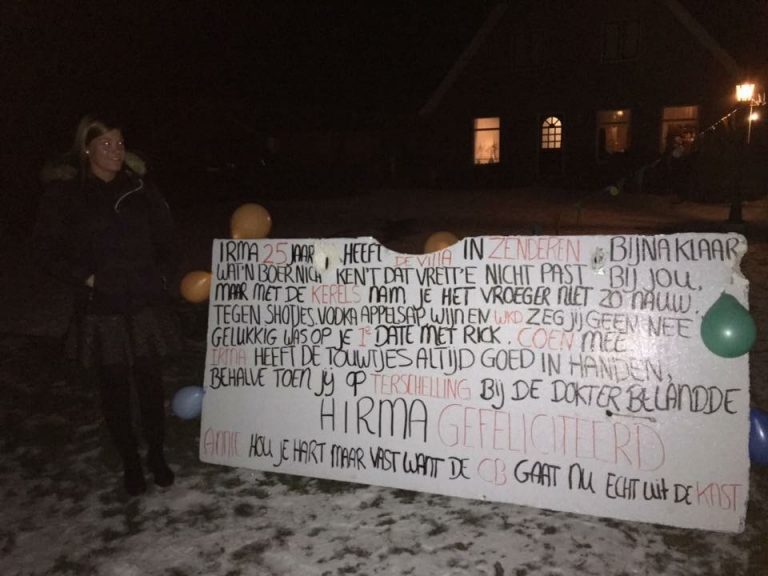 IRMA 25 JAAR HEEFT DE VILLA IN ZENDEREN BIJNA KLAAR
WAT'N BOER NICH KEN'T DAT VRETT'E NICHT PAST BIJ JOU,
MAAR MET DE KERELS NAM JE HET VROEGER NIET ZO NAUW.
TEGEN SHOTJES, VODKA APPELSAP, WIJN EN WKD ZEG JIJ GEEN NEE
GELUKKIG WAS OP JE 1E DATE MET RICK. COEN MEE
IRMA HEEFT DE TOUWTJES ALTIJD GOED IN HANDEN,
BEHALVE TOEN JIJ OP TERSCHELLING BIJ DE DOKTER BELANDDE
HIRMA GEFELICITEERD
ANNIE HOU JE HART MAAR VAST WANT DE CB GAAT NU ECHT UIT DE KAST